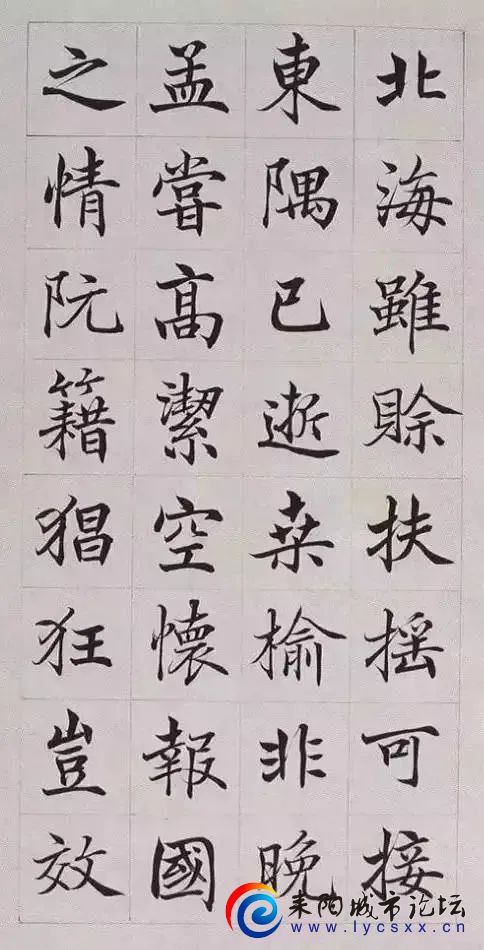 北海雖賒扶摇可接
東隅已逝桒榆非晚
孟嘗高潔空懷報國
之情阮籍猖狂豈效
耒阳城市论坛
www.lycsxx.cn